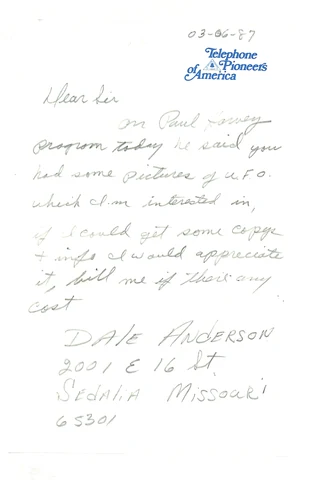 03-06-87
Telephone
Pioneers
of America
Dear Sir
on Paul Harvey
program today he said you
had some pictures of U.F.O.
which I'm interested in,
if I could get some copys
+ info I would appreciate
it, bill me if there any
cost
DALE ANDERSON
2001 E 16 St.
SEDALIA MISSOURI
65301